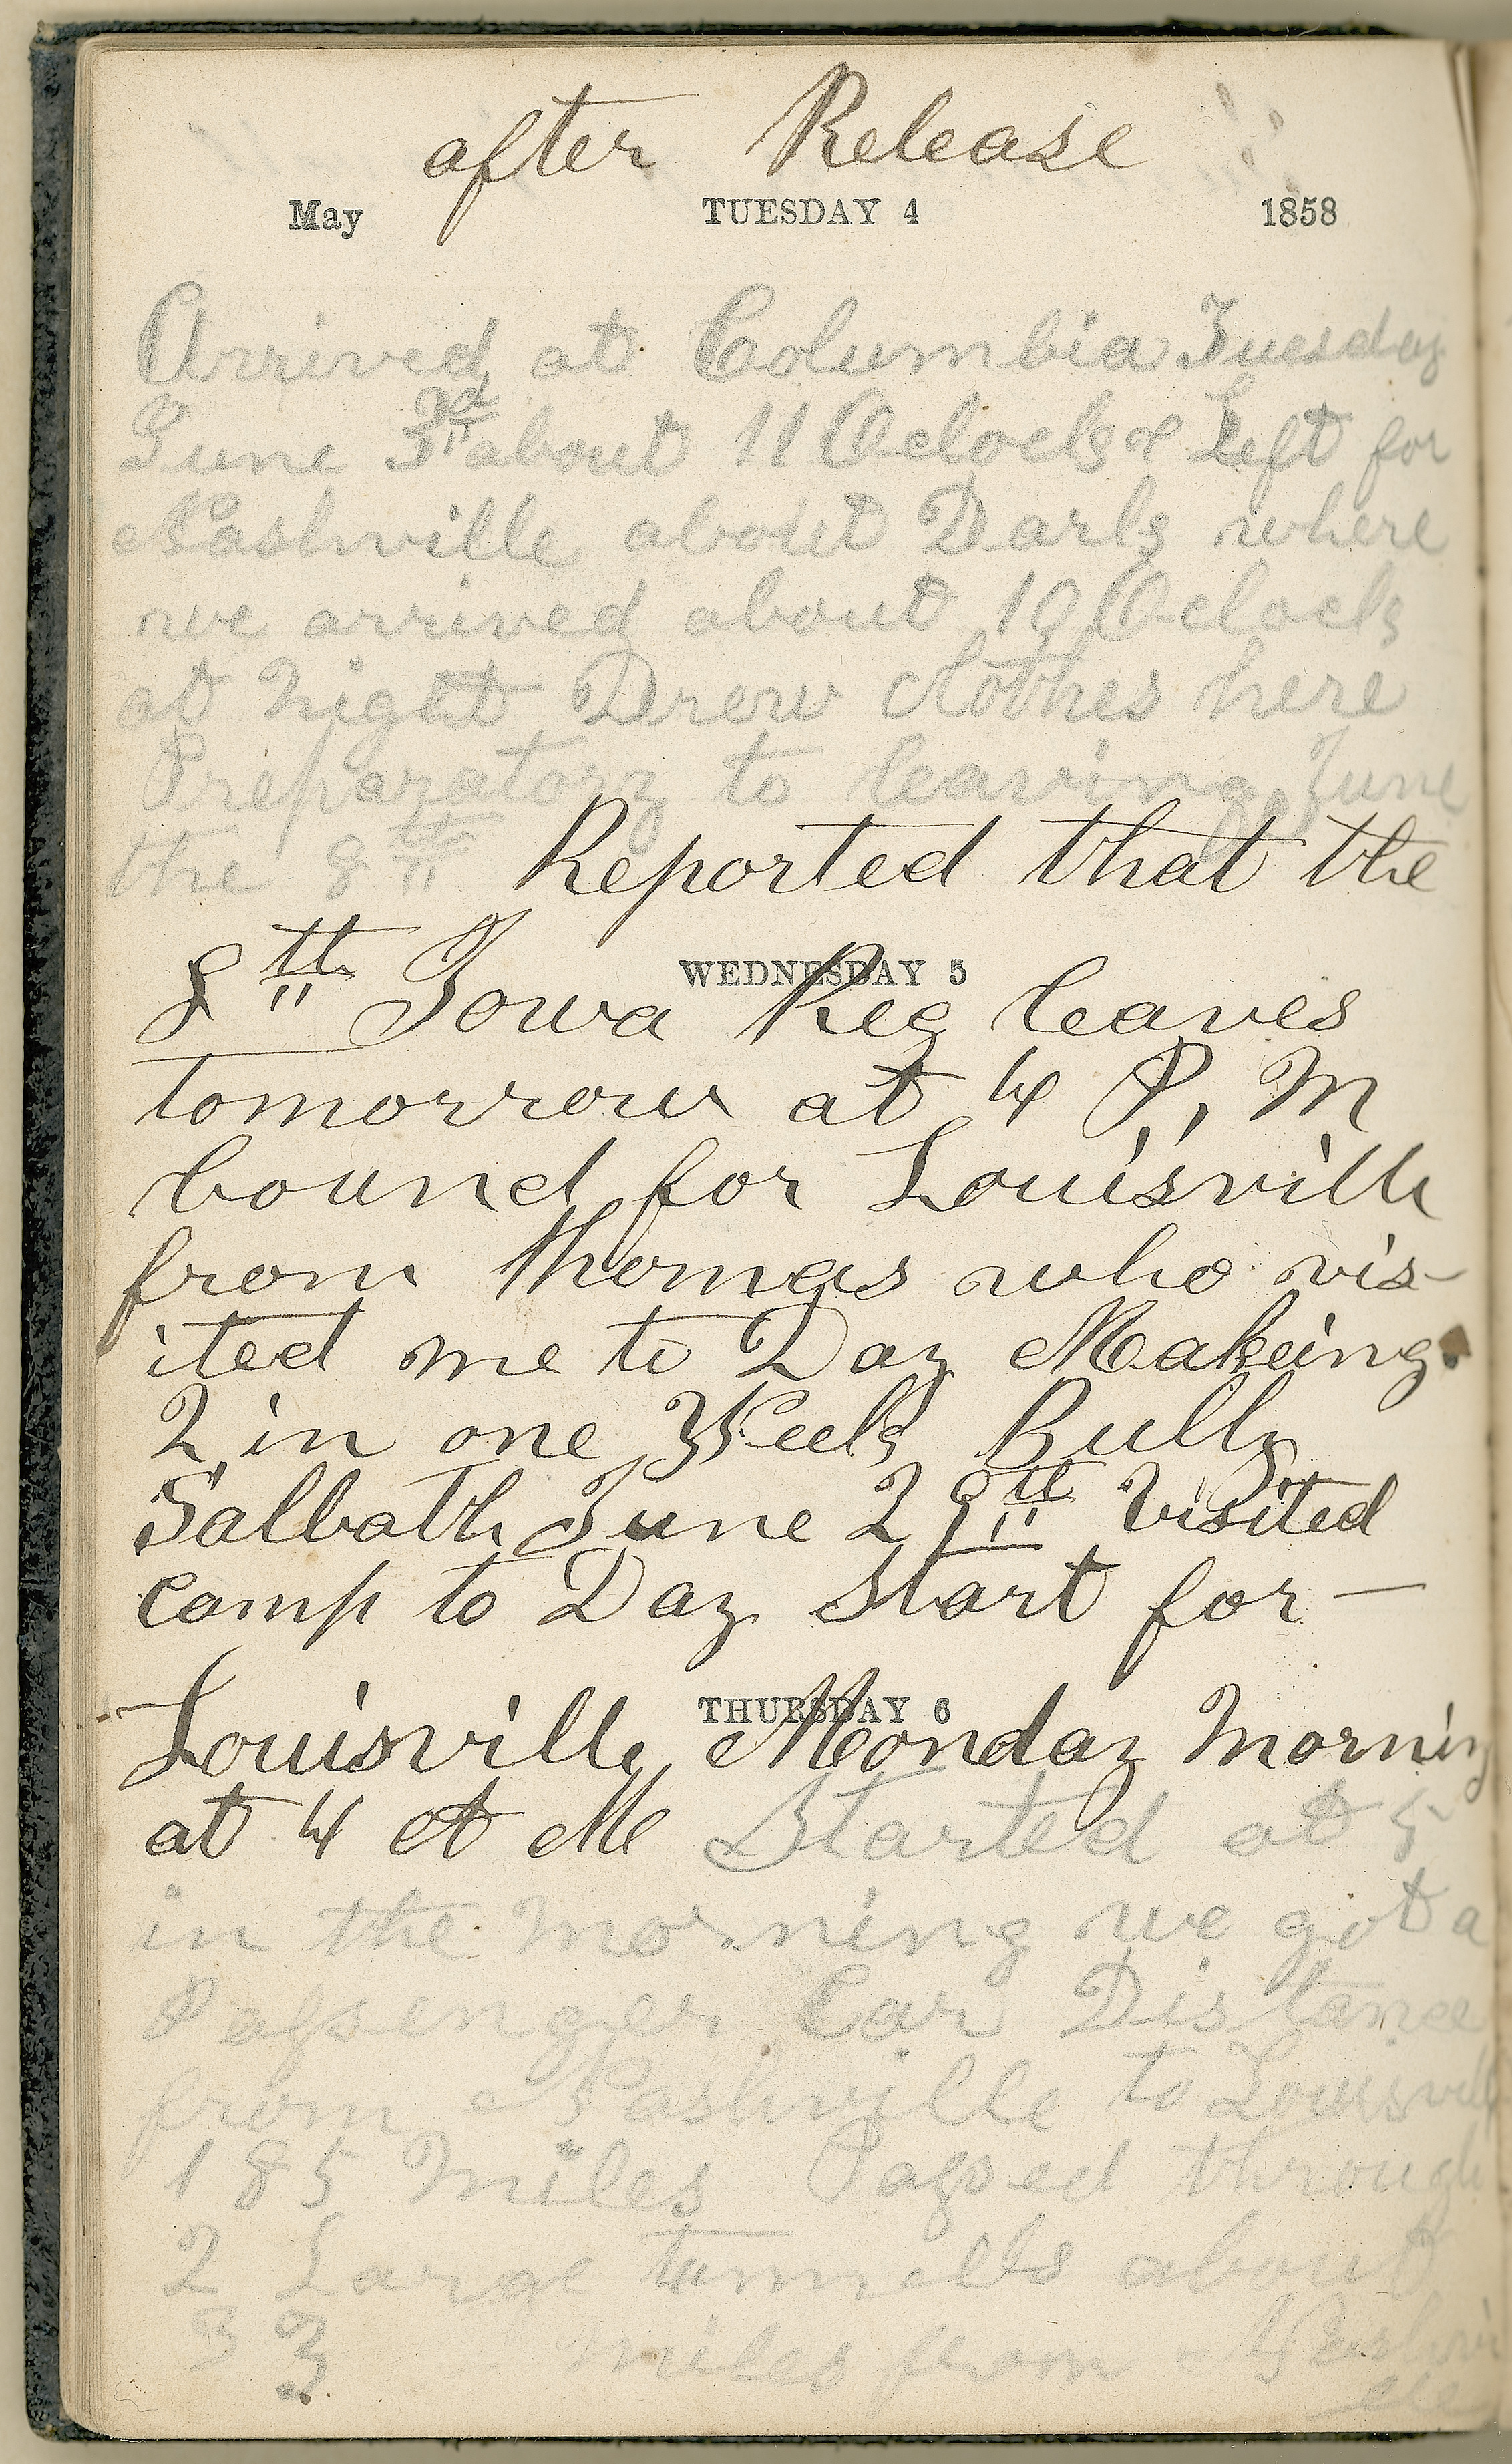 after Release
May TUESDAY 4 1858
Arrived at Columbia Tuesday
June 3rd about 11 Oclock & Left for
Nashville about Dark where
we arrived about 10 Oclock
at Night Drew Clothes here
Preparatory to leaving June
the 8th Reported that the
WEDNESDAY 5
8th Iowa Reg leaves
tomorrow at 4 P, M
bound for Louisville
from Thomas who vis-
ited me to Day Makeing
2 in one Week Bully
Salbath June 29th Visited
Camp to Day Start for —
THURSDAY 6
Louisville Monday Morning
at 4 A M Started at 5
in the Morning we got a
Passenger Car Distance
from Nashville to Louisville
185 Miles Passed through
2 Large tunnells about
33 miles from Nashvi
lle